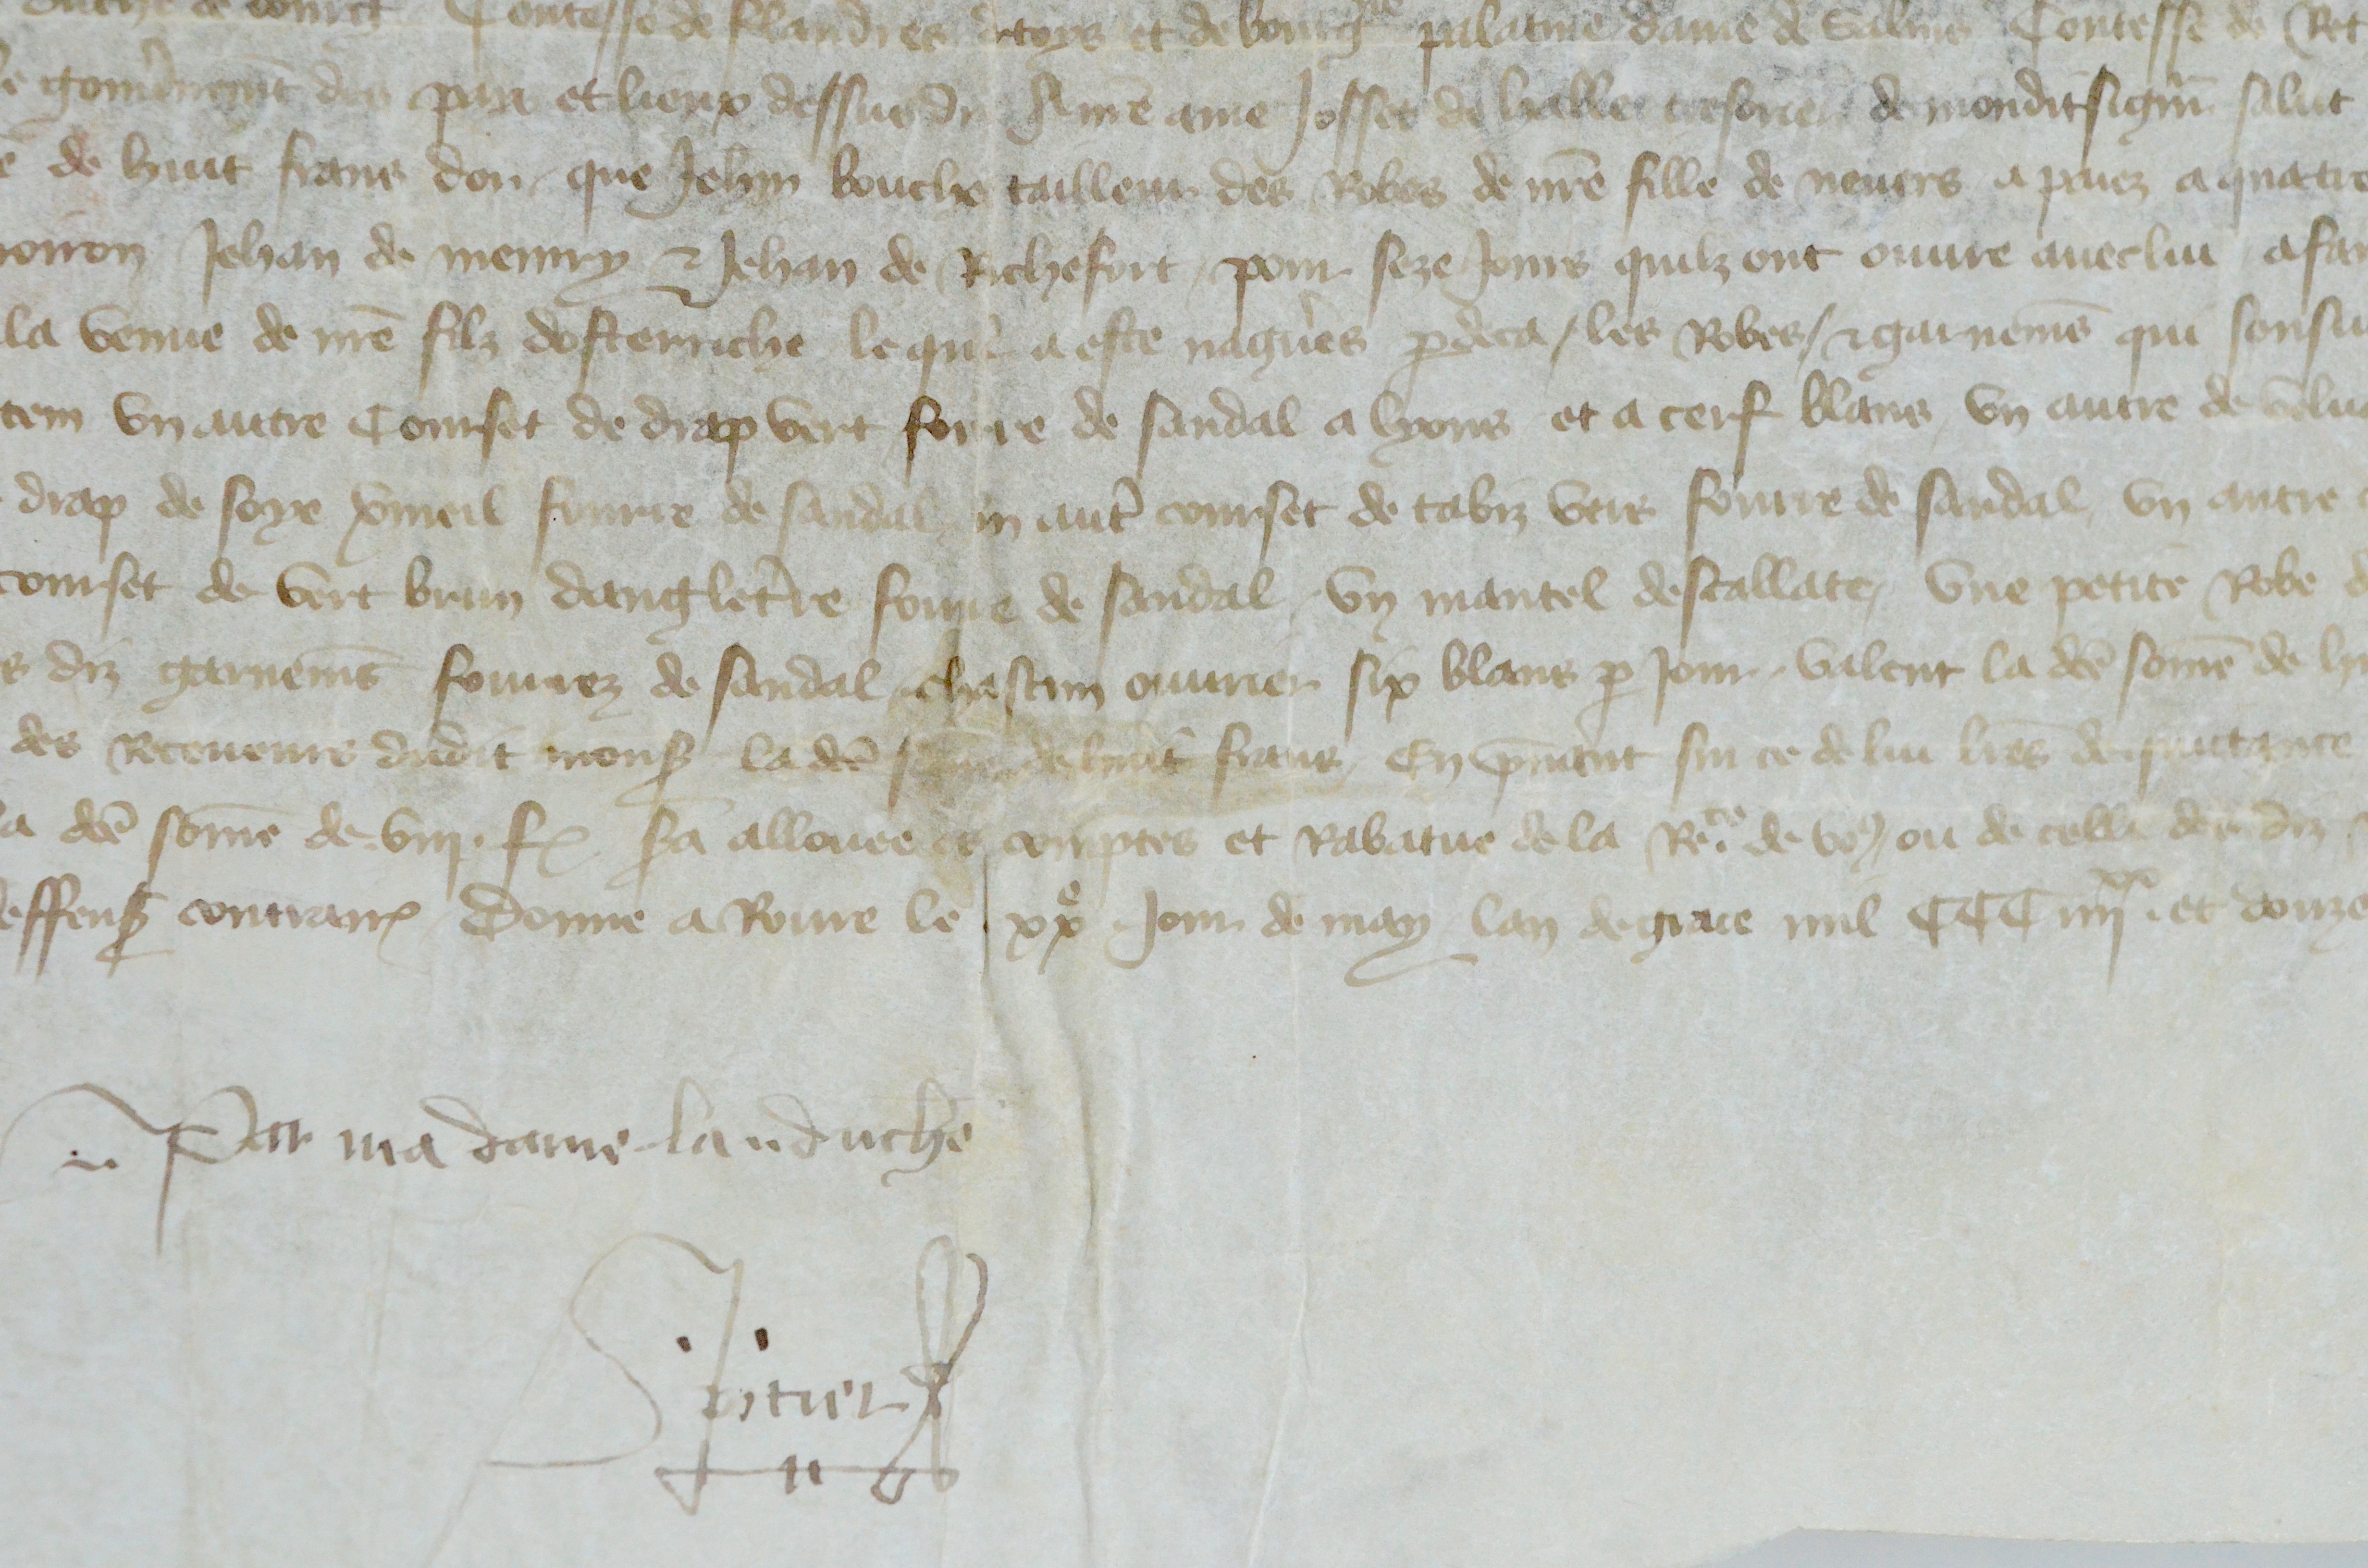 Contesse de flandres artoys et de bourgne palatine dame de Salins Contesse de Ret
gouvnemt des pais et lieux dessusdiz A nre ame Josset de halle tresorier de monditsignr salut
de huit frans don que Jehan bouche tailleur des Robes de nre fille de nevers a paiez a quatre
Jehan de & Jehan de Richefort pour seze Jours quilz ont ouvre avec lui a fai
la venue de nre filz dosterriche lequel a este nagures pdeca / les Robes / & garnemens qui sensui
tem un autre Courset de drap vert fourre de sandal a lyons et a cerf blans un autre de velu
drap de soye vmeil fourre de sandal un autr courset de tabiz vers fourre de sandal un autre
courset de vert brun dangletrre fourre de sandal Un mantel descallate une petite Robe d
s diz garnemens fourrez de sandal chascun ouvrier six blans p Jour valent la dce some de hu
des Receveurs dudit mons la dce some de huit frans En pnant sur ce de lui lres de quittance
a dce some de viij. fr sa allouee es comptes et Rabatue de la Recte de vos ou de cellui des diz
deffens contraires Donne a Rouvre le xxe Jour de may lan de grace mil CCC iiij xx et douze
Par ma dame la duchesse